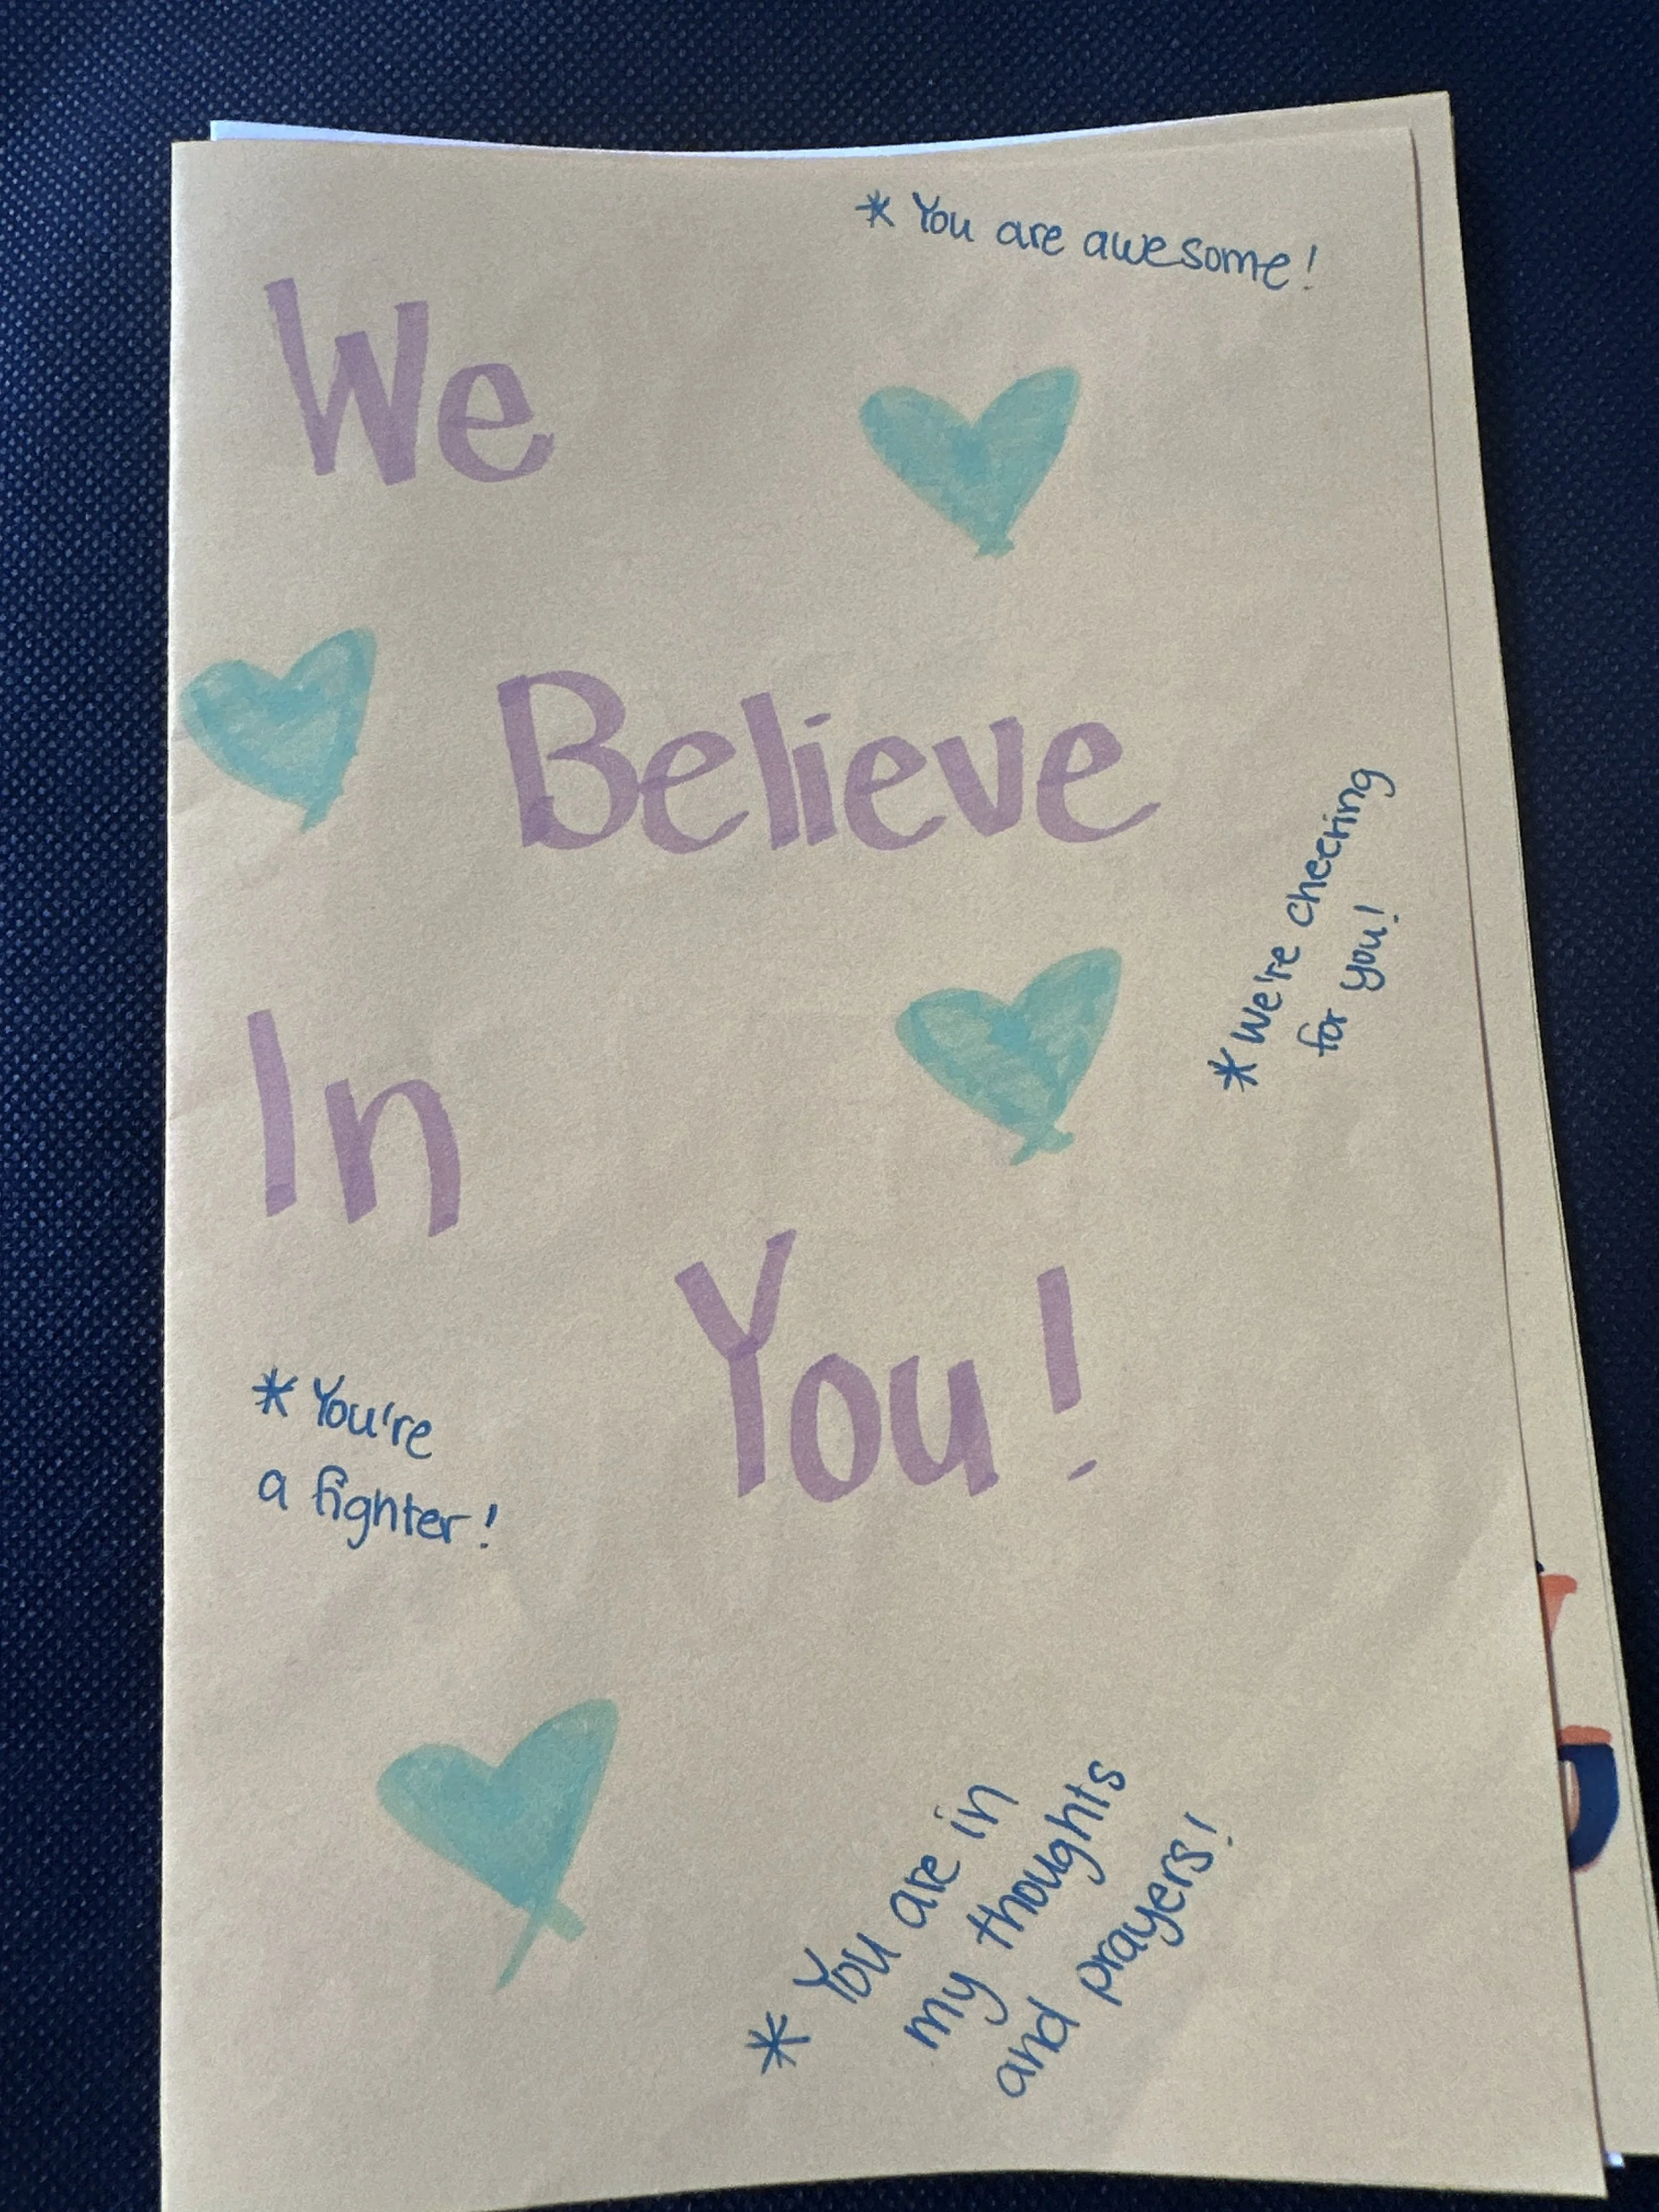 * You are awesome!
We
Believe
* We're cheering
for you!
In
You!
* You're
a fighter!
* You are in
my thoughts
and prayers!